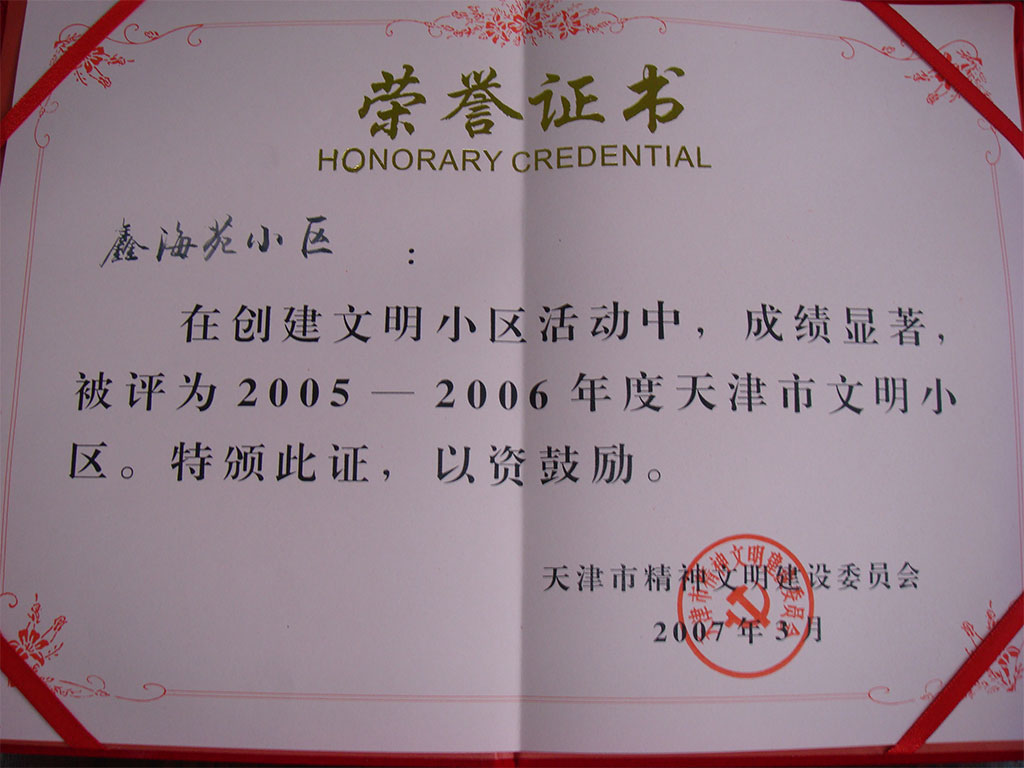 荣誉证书
HONORARY CREDENTIAL
鑫海苑小区：
在创建文明小区活动中，成绩显著，
被评为2005—2006年度天津市文明小
区。特颁此证，以资鼓励。
天津市精神文明建设委员会
2007年3月
天津市精神文明建设委员会